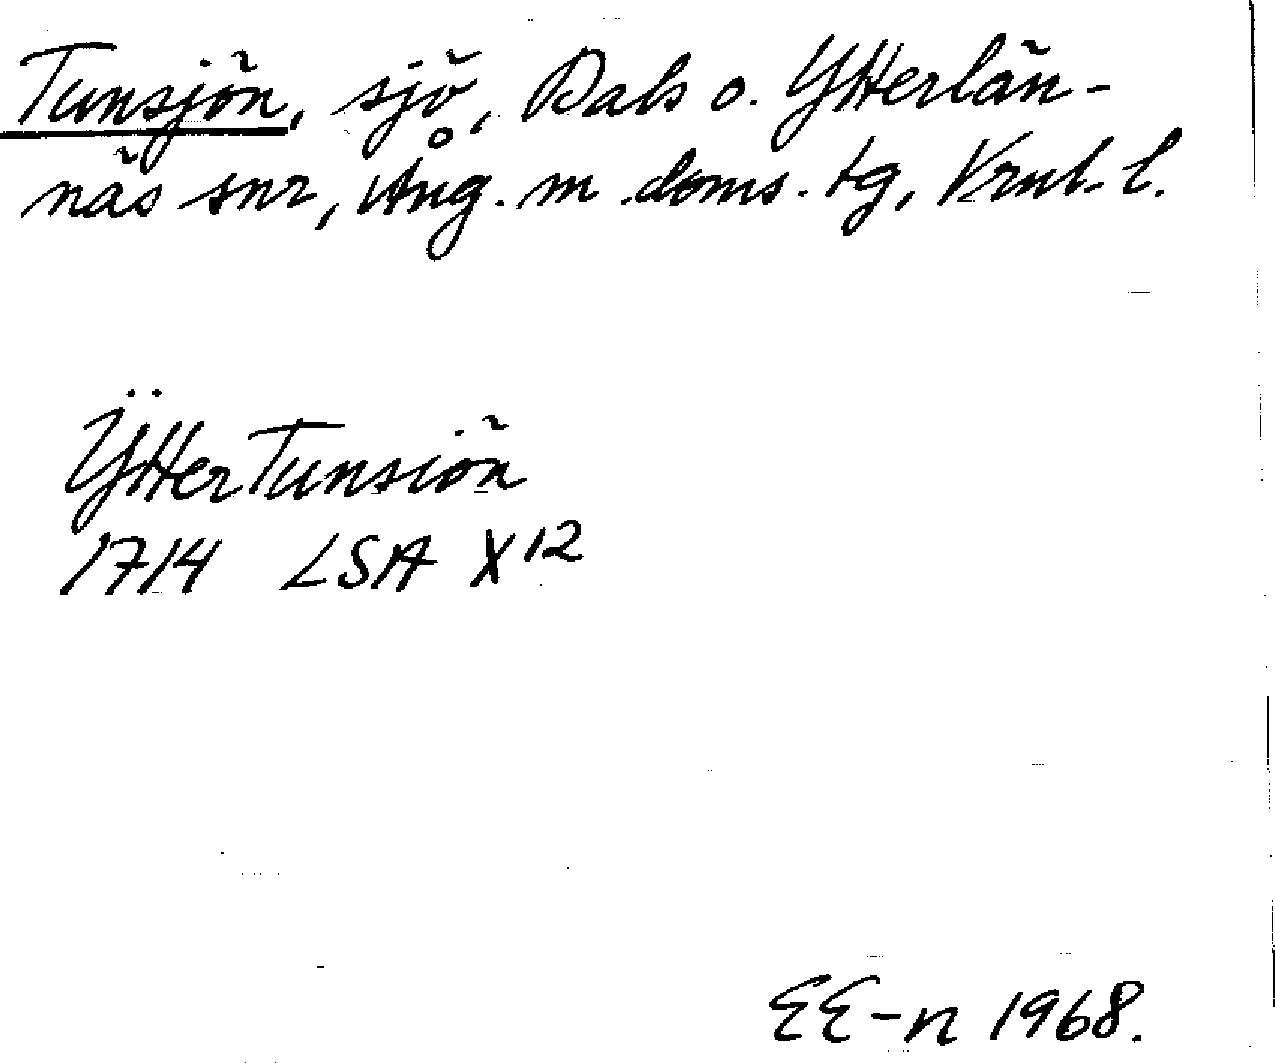 Tunsjön, sjö, Dals o. Ytterlän-
näs snr, Ång. m doms. tg, Vrnl. l.
Ÿtter Tunsiön
1714 LSA X12
EE-n 1968.